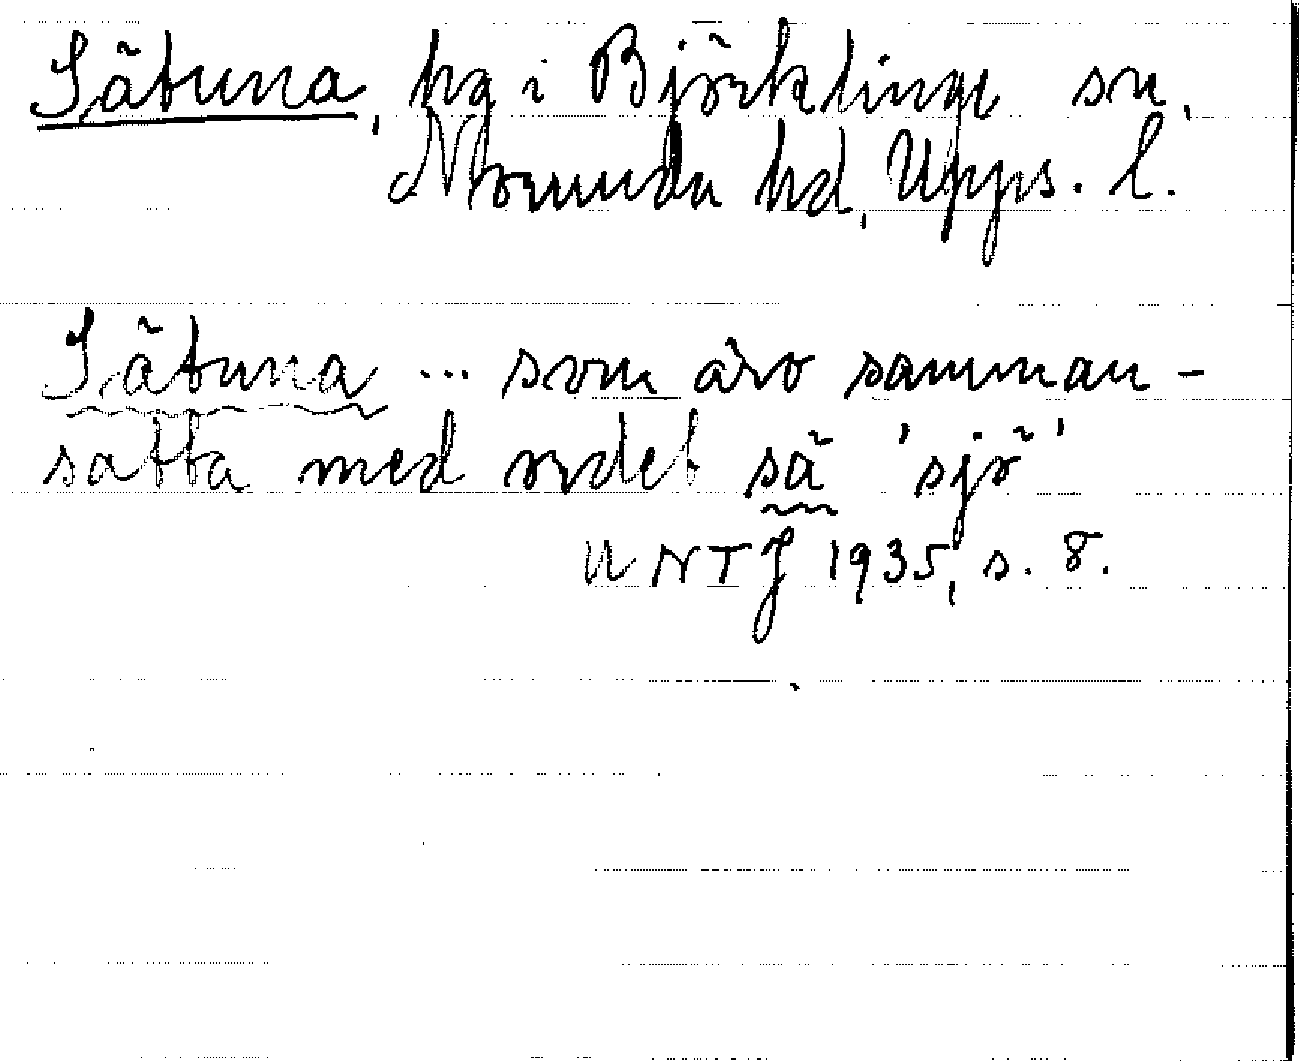 Sätuna, hg i Björklinge sn,
Norunda hd, Upps. l.
Sätuna ... som äro samman-
satta med ordet sä 'sjö'
UNTJ 1935, s. 8.